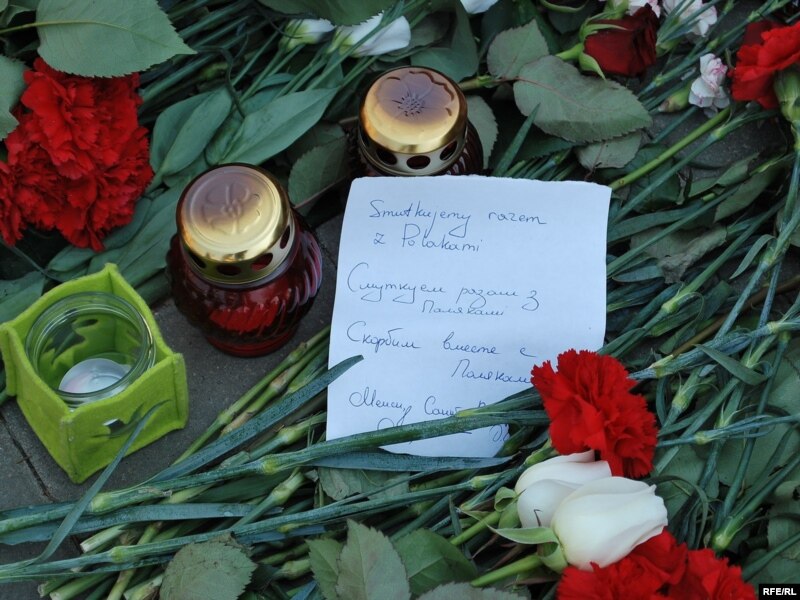 Smutkujemy razem
z Polakami
Смуткуем разам з
Палякамі
Скорбим вместе с
Поляками
RFE/RL